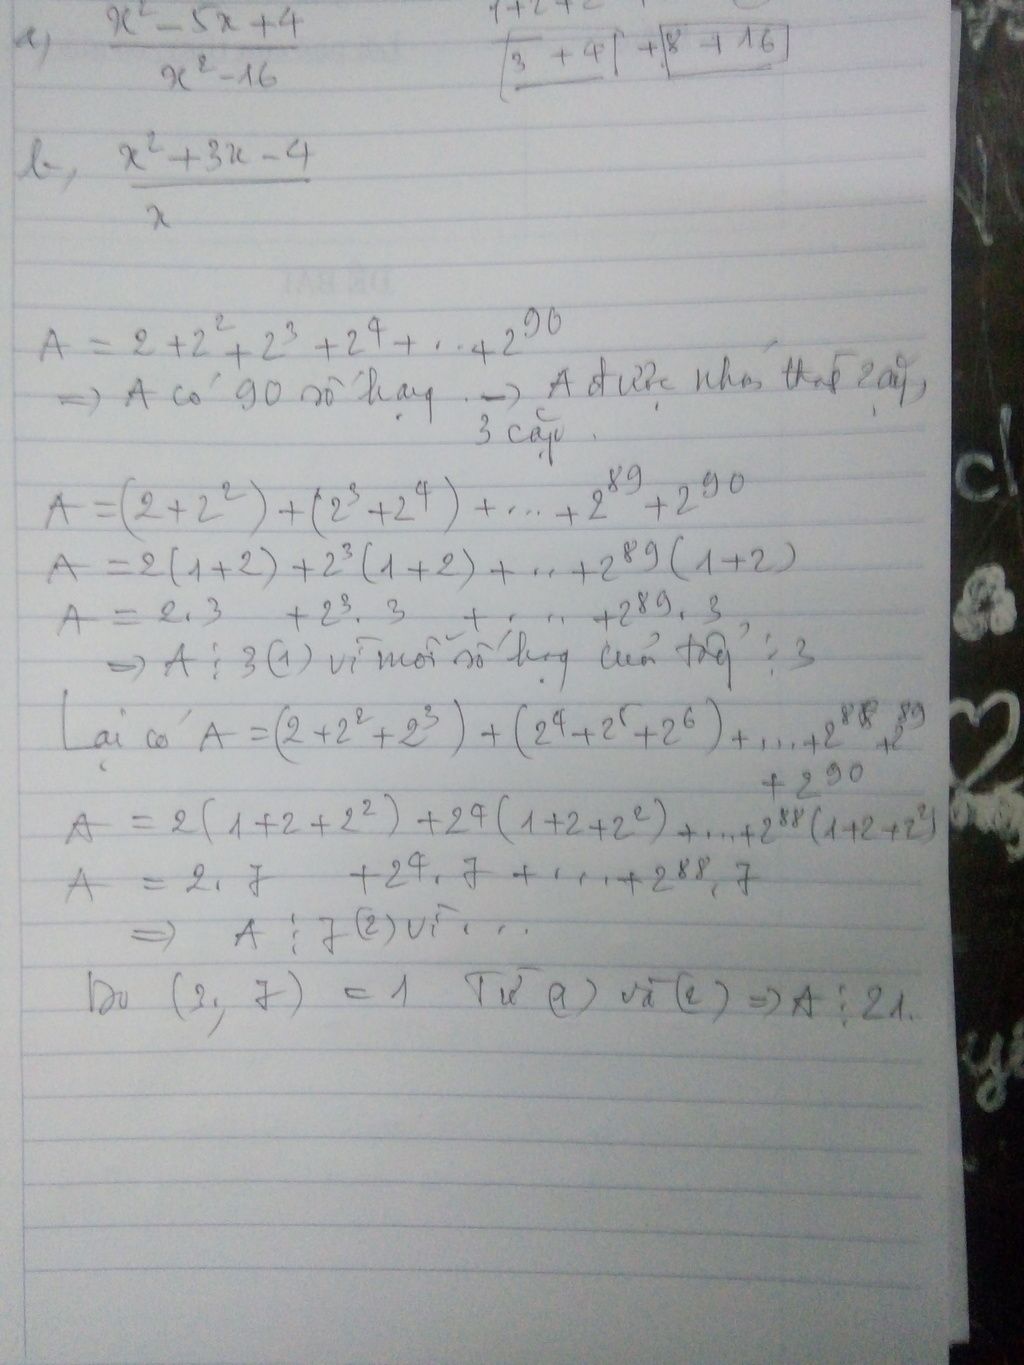 a, x² - 5x + 4 / x² - 16
1+2+2
[3 + 4] + [8 + 16]
b, x² + 3x - 4 / x
A = 2 + 2² + 2³ + 2⁴ + ... + 2⁹⁰
=> A có 90 số hạng . -> A được nhóm thành 2 cặp,
3 cặp .
A = (2 + 2²) + (2³ + 2⁴) + ... + 2⁸⁹ + 2⁹⁰
A = 2(1+2) + 2³(1+2) + ... + 2⁸⁹(1+2)
A = 2.3 + 2³.3 + .... + 2⁸⁹.3
=> A ⋮ 3 (1) vì mỗi số hạng của tổng ⋮ 3
Lại có A = (2 + 2² + 2³) + (2⁴ + 2⁵ + 2⁶) + ... + 2⁸⁸ + 2⁸⁹
+ 2⁹⁰
A = 2(1+2+2²) + 2⁴(1+2+2²) + ... + 2⁸⁸(1+2+2²)
A = 2.7 + 2⁴.7 + .... + 2⁸⁸.7
=> A ⋮ 7 (2) vì ...
Do (2, 7) = 1 Từ (1) và (2) => A ⋮ 21.
c/